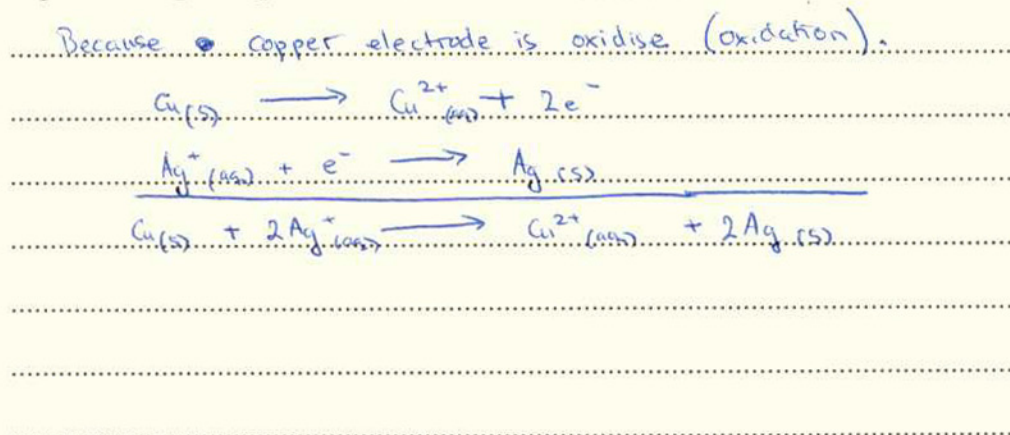 Because copper electrode is oxidise (oxidation).
Cu(s) → Cu²⁺(aq) + 2e⁻
Ag⁺(aq) + e⁻ → Ag(s)
Cu(s) + 2Ag⁺(aq) → Cu²⁺(aq) + 2Ag(s)